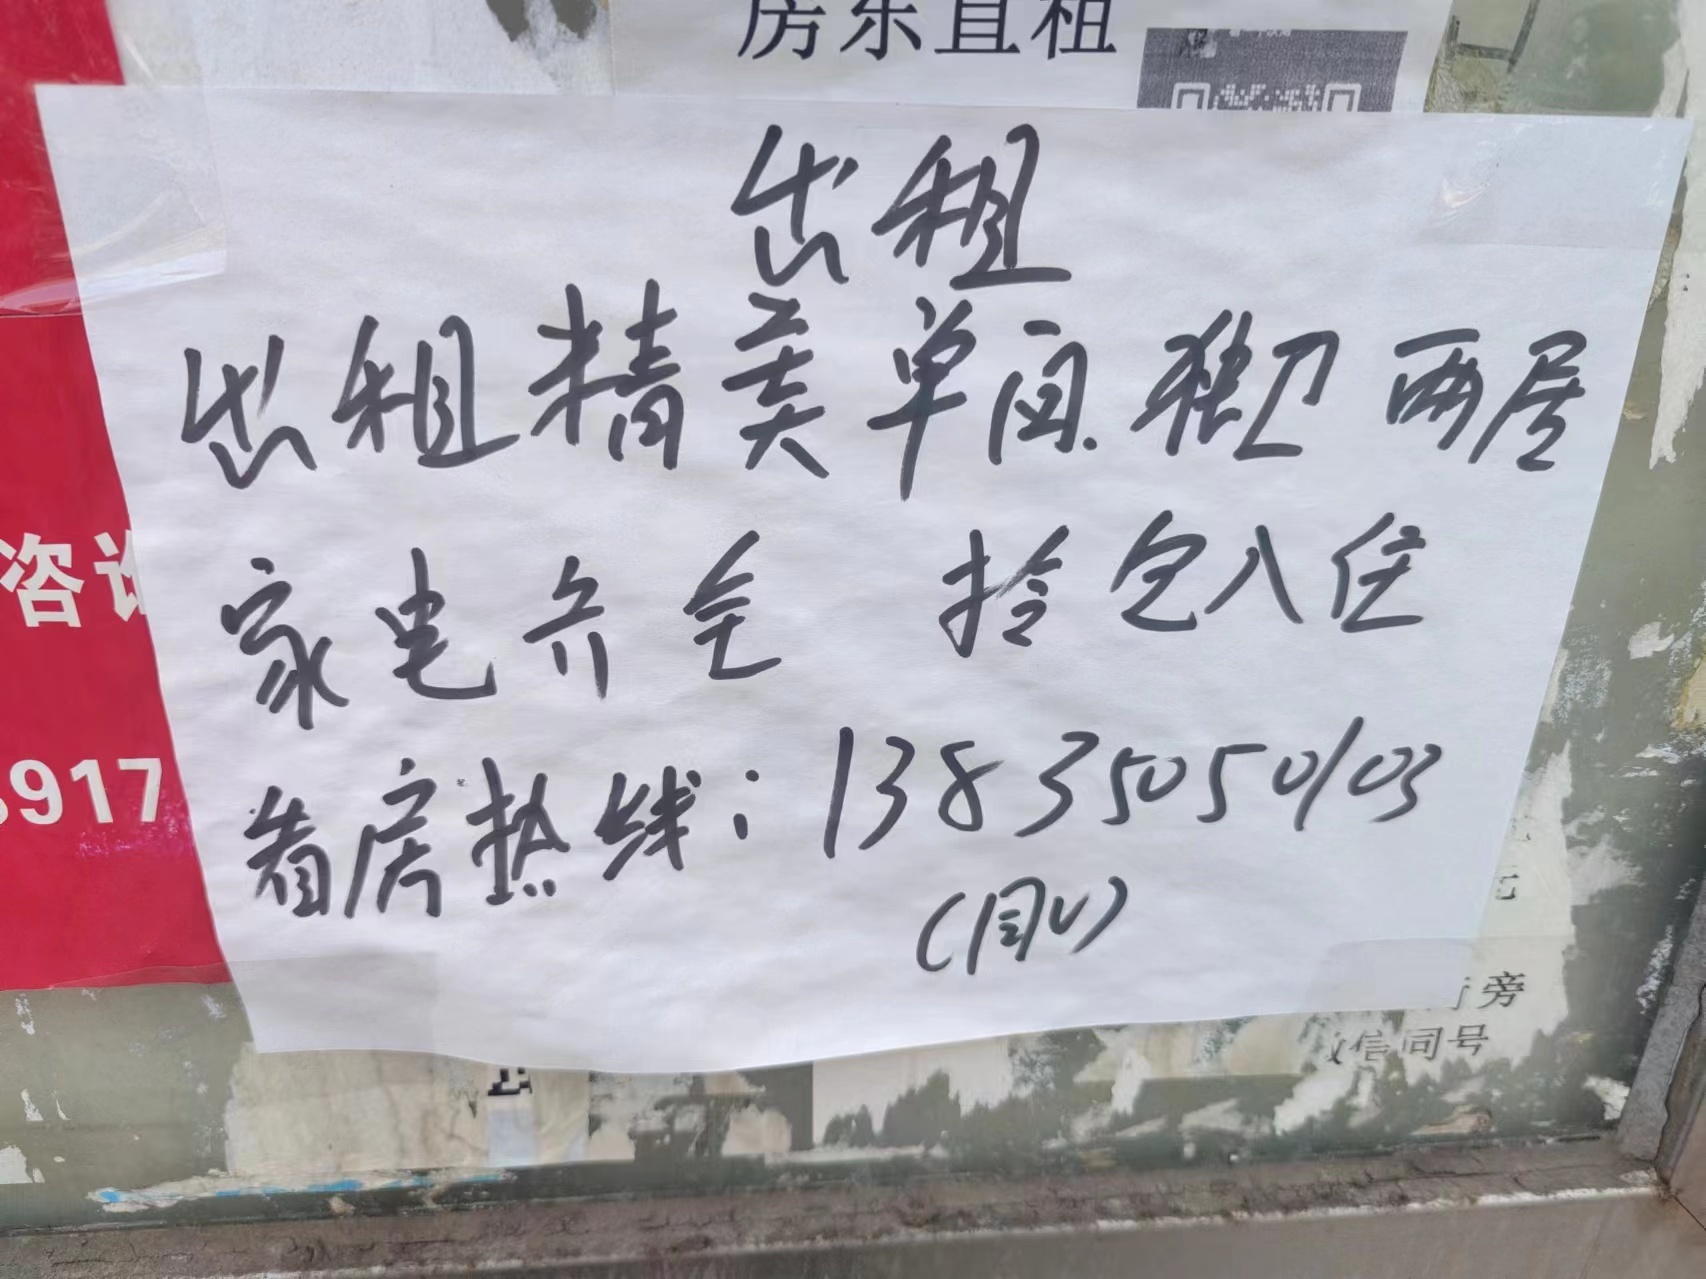 房东直租
出租
出租精美单间 独卫 两居
家电齐全 拎包入住
看房热线：13835050103
(同V)
咨询
917
旁
微信同号